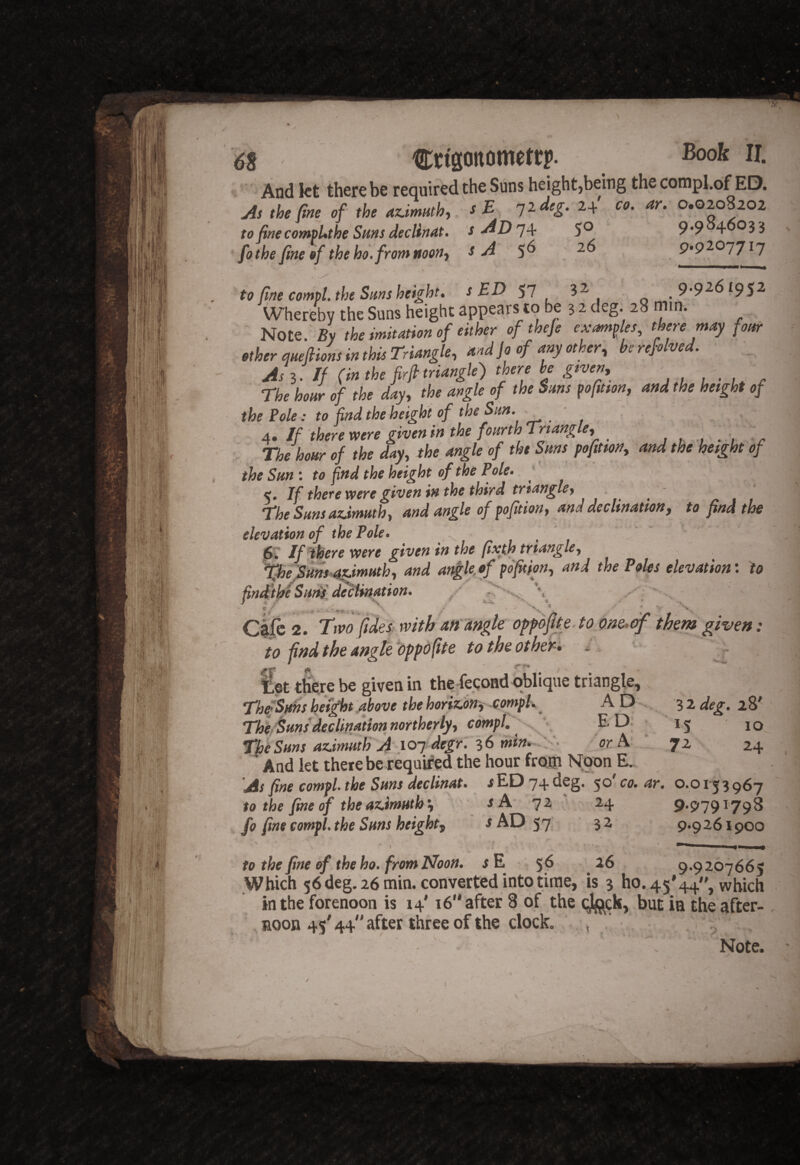 68 Trigonometry. Book II.
And let there be required the Suns height,being the compl.of ED.
As the ſine of the azimuth, s E 72 deg. 24′ co. ar. 0.0208202
to ſine compl.the Suns declinat. s AD 74 50 9.9846033
ſo the ſine of the ho.from noon, s A 56 26 9.9207717
to ſine compl. the Suns height. s ED 57 32 9.9261952
Whereby the Suns height appears to be 32 deg. 28 min.
Note. By the imitation of either of theſe examples, there may four
other queſtions in this Triangle, and ſo of any other, be reſolved.
As 3. If (in the firſt triangle) there be given,
The hour of the day, the angle of the Suns poſition, and the height of
the Pole: to find the height of the Sun.
4. If there were given in the fourth Triangle,
The hour of the day, the angle of the Suns poſition, and the height of
the Sun: to find the height of the Pole.
5. If there were given in the third triangle,
The Suns azimuth, and angle of poſition, and declination, to find the
elevation of the Pole.
6. If there were given in the ſixth triangle,
The Suns azimuth, and angle of poſition, and the Poles elevation: to
find the Suns declination.
Caſe 2. Two ſides with an angle oppoſite to one of them given:
to find the angle oppoſite to the other.
Let there be given in the ſecond oblique triangle,
The Suns height above the horizon, compl. A D 32 deg. 28′
The Suns declination northerly, compl. E D 15 10
The Suns azimuth A 107 degr. 36 min. or A 72 24
And let there be required the hour from Noon E.
As ſine compl. the Suns declinat. s ED 74 deg. 50′ co. ar. 0.0153967
to the ſine of the azimuth; s A 72 24 9.9791798
ſo ſine compl. the Suns height, s AD 57 32 9.9261900
to the ſine of the ho. from Noon. s E 56 26 9.9207665
Which 56 deg. 26 min. converted into time, is 3 ho. 45′44″, which
in the forenoon is 14′ 16″ after 8 of the clock, but in the after-
noon 45′ 44″ after three of the clock.
Note.